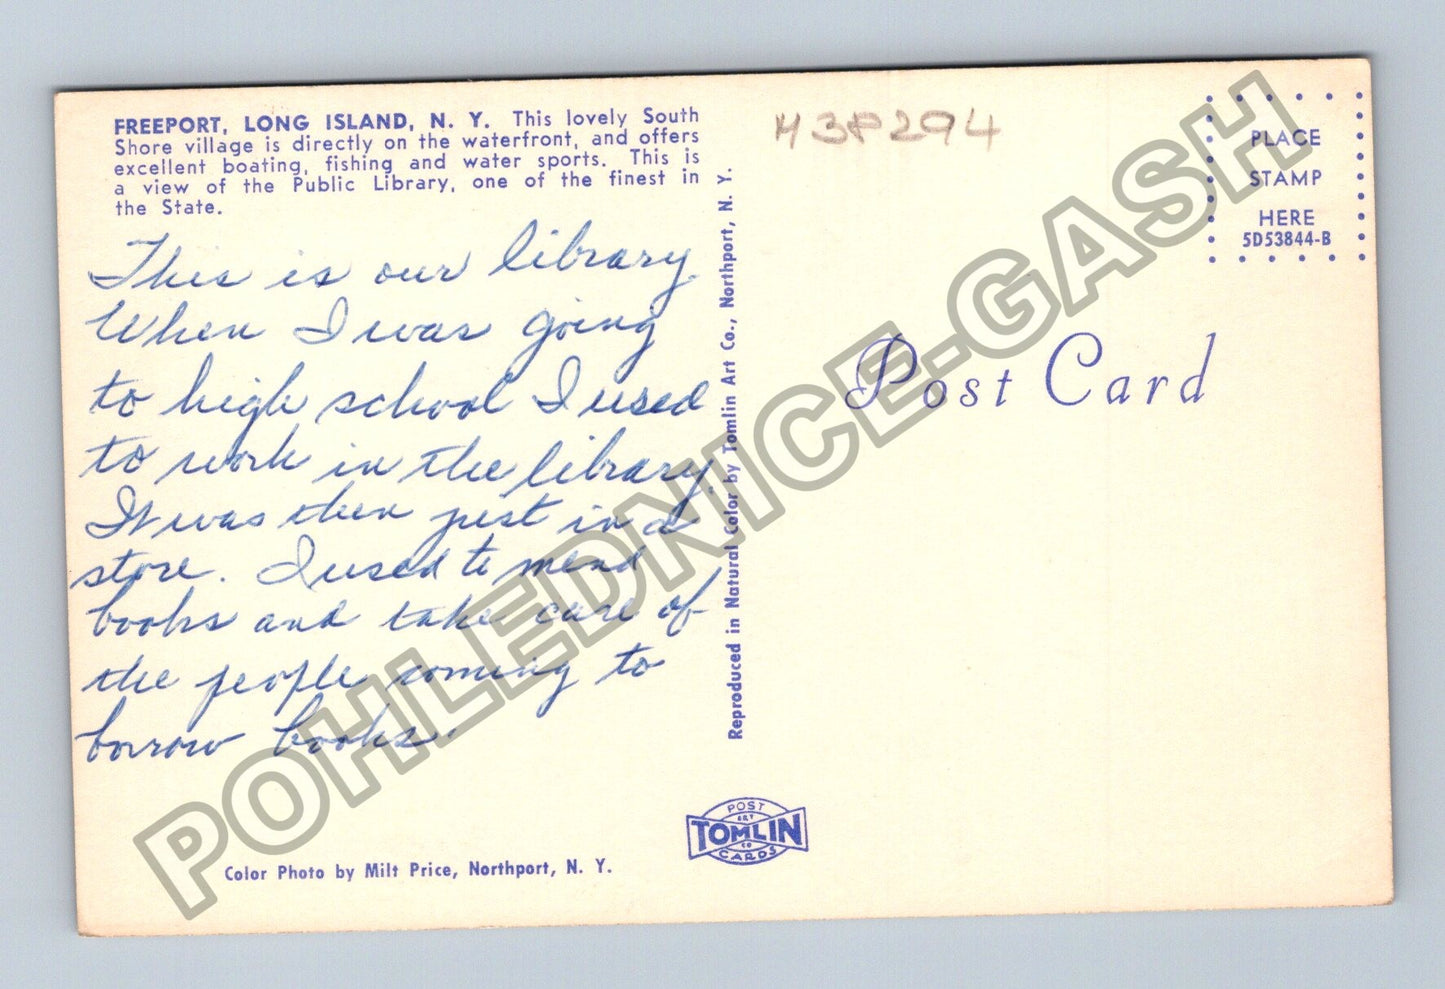 FREEPORT, LONG ISLAND, N. Y. This lovely South
Shore village is directly on the waterfront, and offers
excellent boating, fishing and water sports. This is
a view of the Public Library, one of the finest in
the State.
This is our library.
When I was going
to high school I used
to work in the library.
It was then just in a
store. I used to mend
books and take care of
the people coming to
borrow books.
Color Photo by Milt Price, Northport, N. Y.
Reproduced in Natural Color by Tomlin Art Co., Northport, N. Y.
POST
ART
TOMLIN
CO
CARDS
H3P294
PLACE
STAMP
HERE
5D53844-B
Post Card
POHLEDNICE-GASH